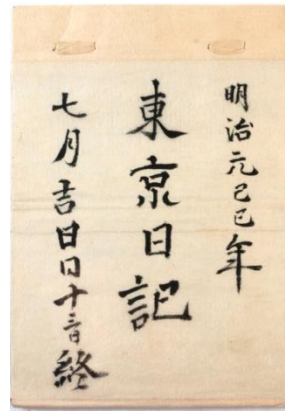 明治元己巳年
東京日記
七月吉日日十三日終